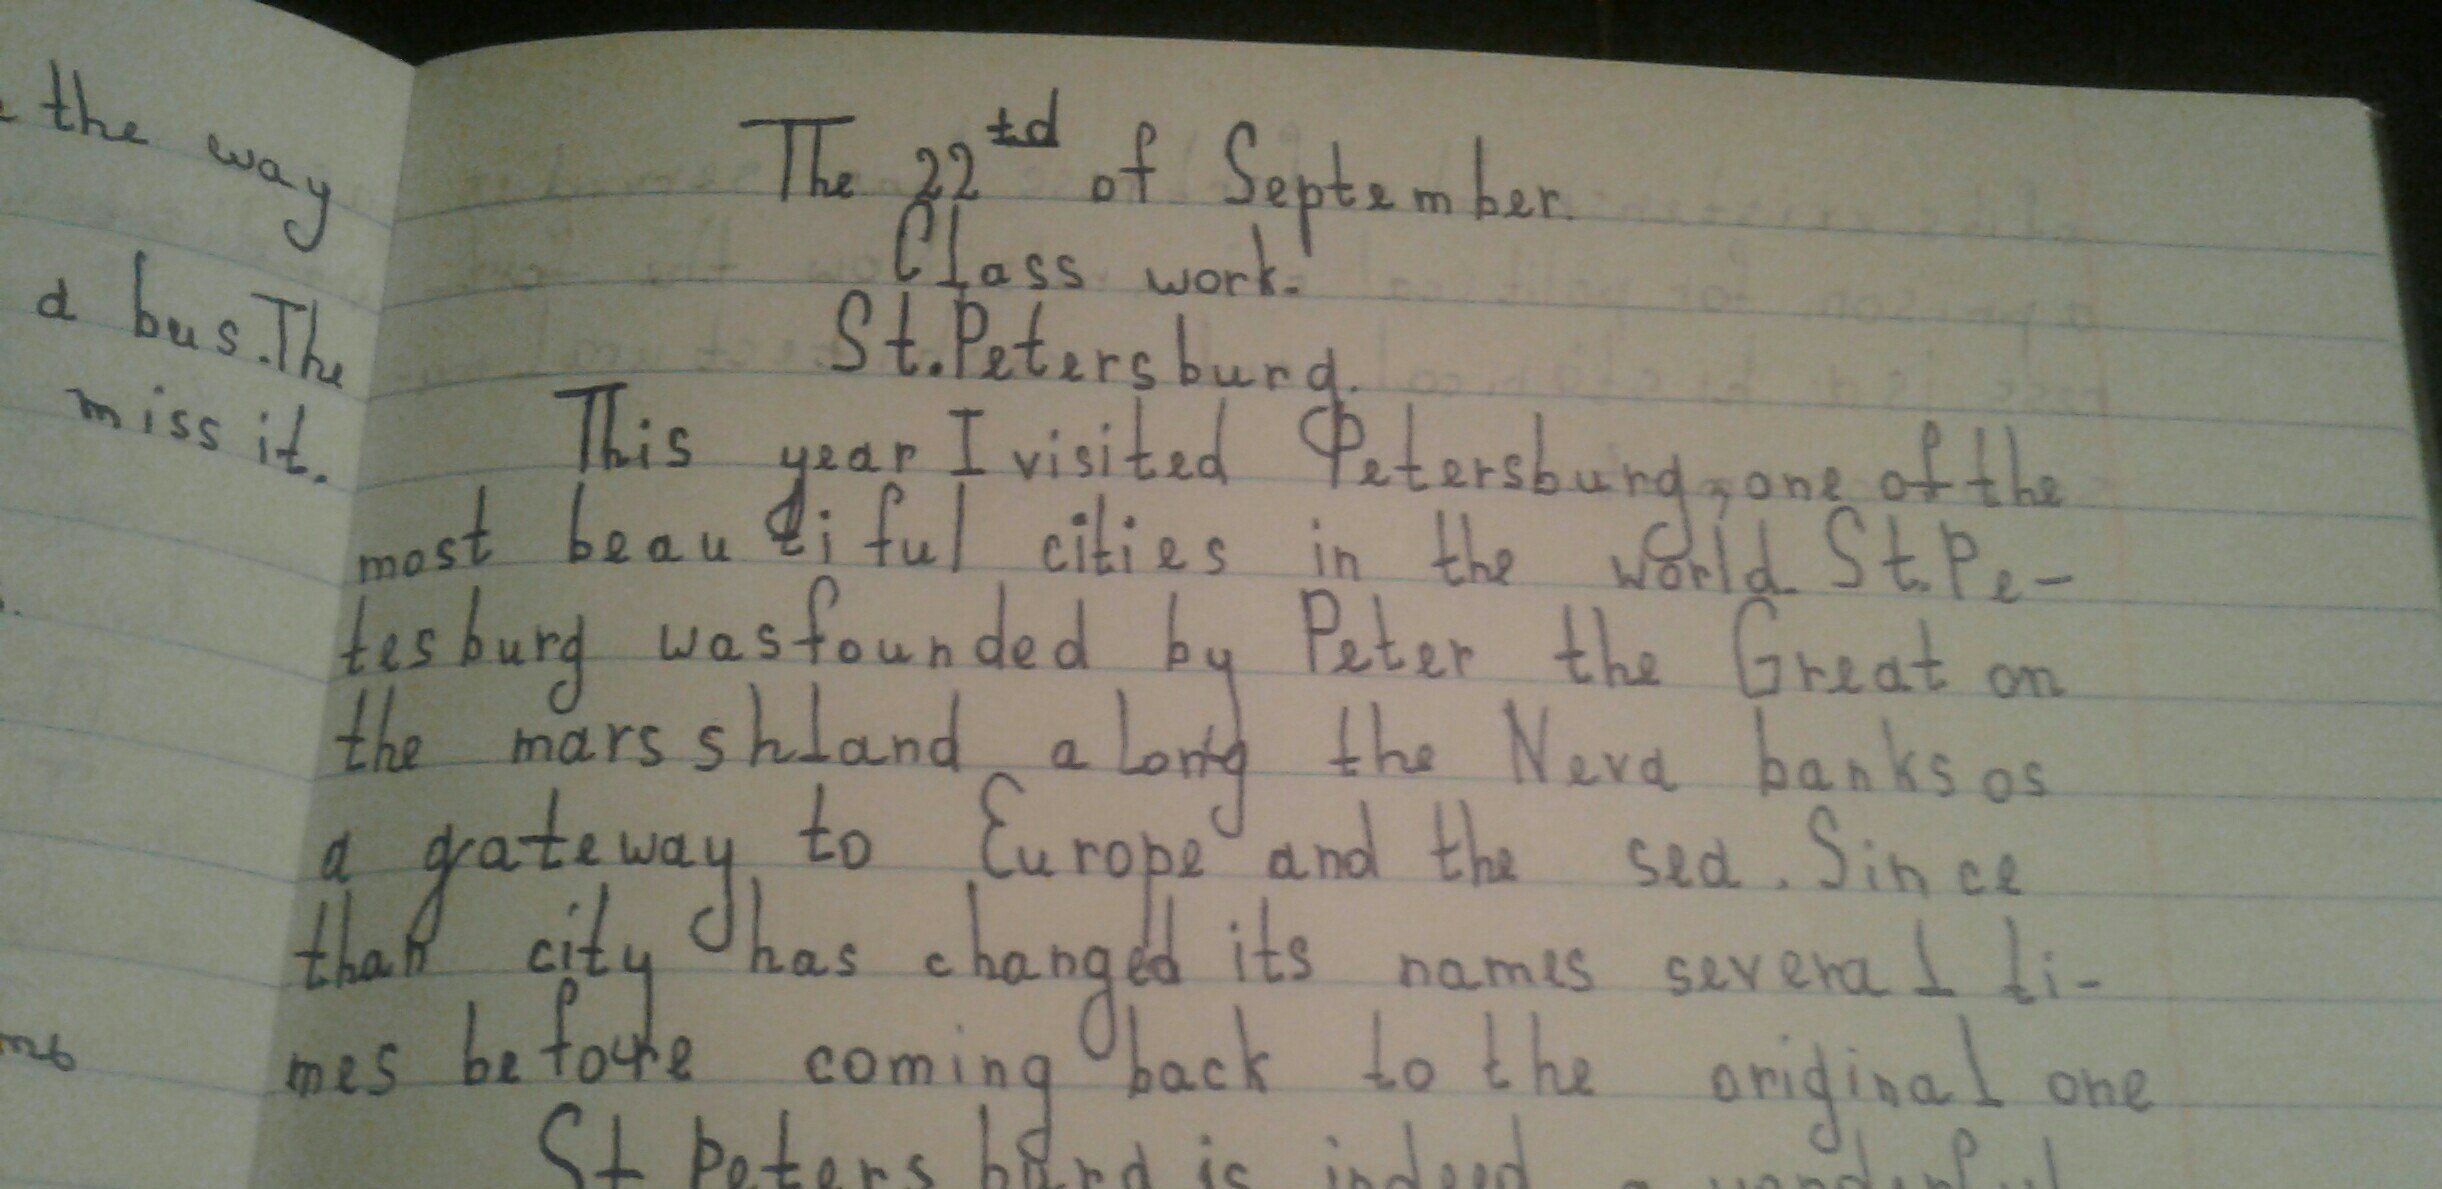 the way
a bus. The
miss it.
The 22td of September.
Class work.
St. Petersburg.
This year I visited Petersburg, one of the
most beautiful cities in the world. St. Pe-
tesburg was founded by Peter the Great on
the marsshland along the Neva banks os
a gateway to Europe and the sea. Since
than city has changed its names several ti-
mes before coming back to the original one
St Petersburg is indeed a wonderful